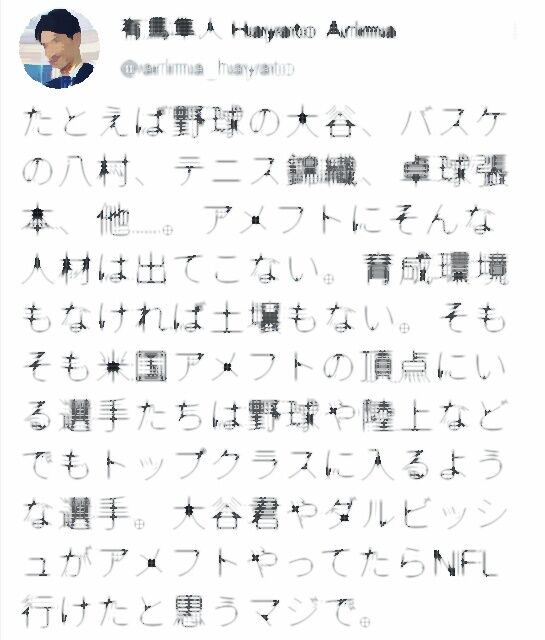 有馬隼人 Hayato Arima
@arima_hayato
たとえば野球の大谷、バスケ
の八村、テニス錦織、卓球張
本、他……。アメフトにそんな
人材は出てこない。育成環境
もなければ土壌もない。そも
そも米国アメフトの頂点にい
る選手たちは野球や陸上など
でもトップクラスに入るよう
な選手。大谷君やダルビッシ
ュがアメフトやってたらNFL
行けたと思うマジで。